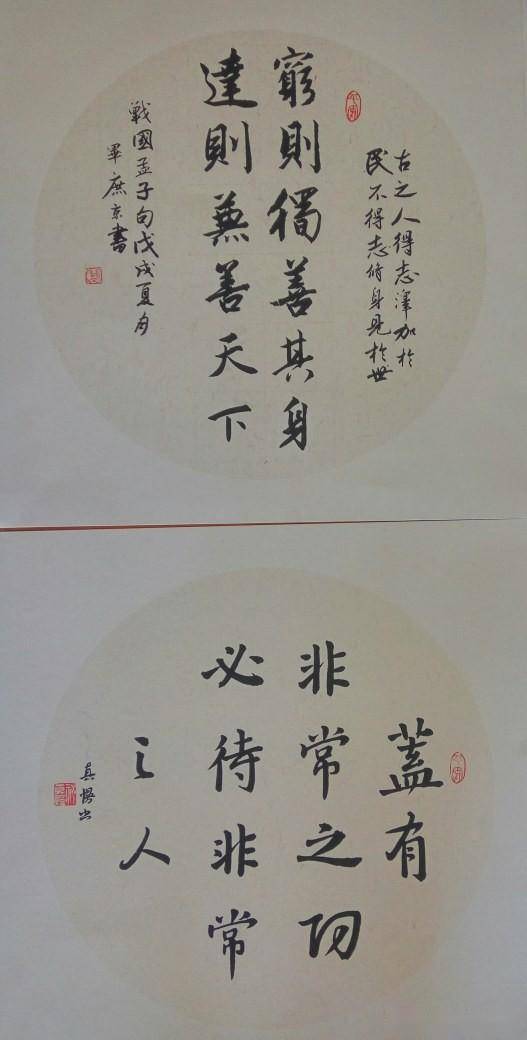 古之人得志澤加於
民不得志脩身見於世
窮則獨善其身
達則兼善天下
戰國孟子句戊戌夏月
畢庶京書
蓋有
非常之功
必待非常
之人
真